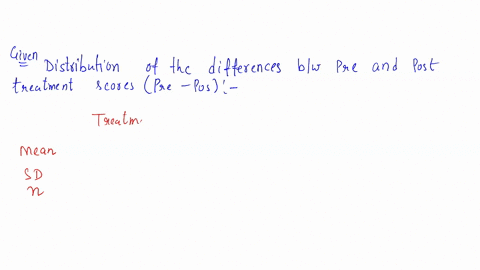 Given Distribution of the differences b/w Pre and Post
treatment scores (Pre - Pos) :-
Treatm
Mean
SD
n